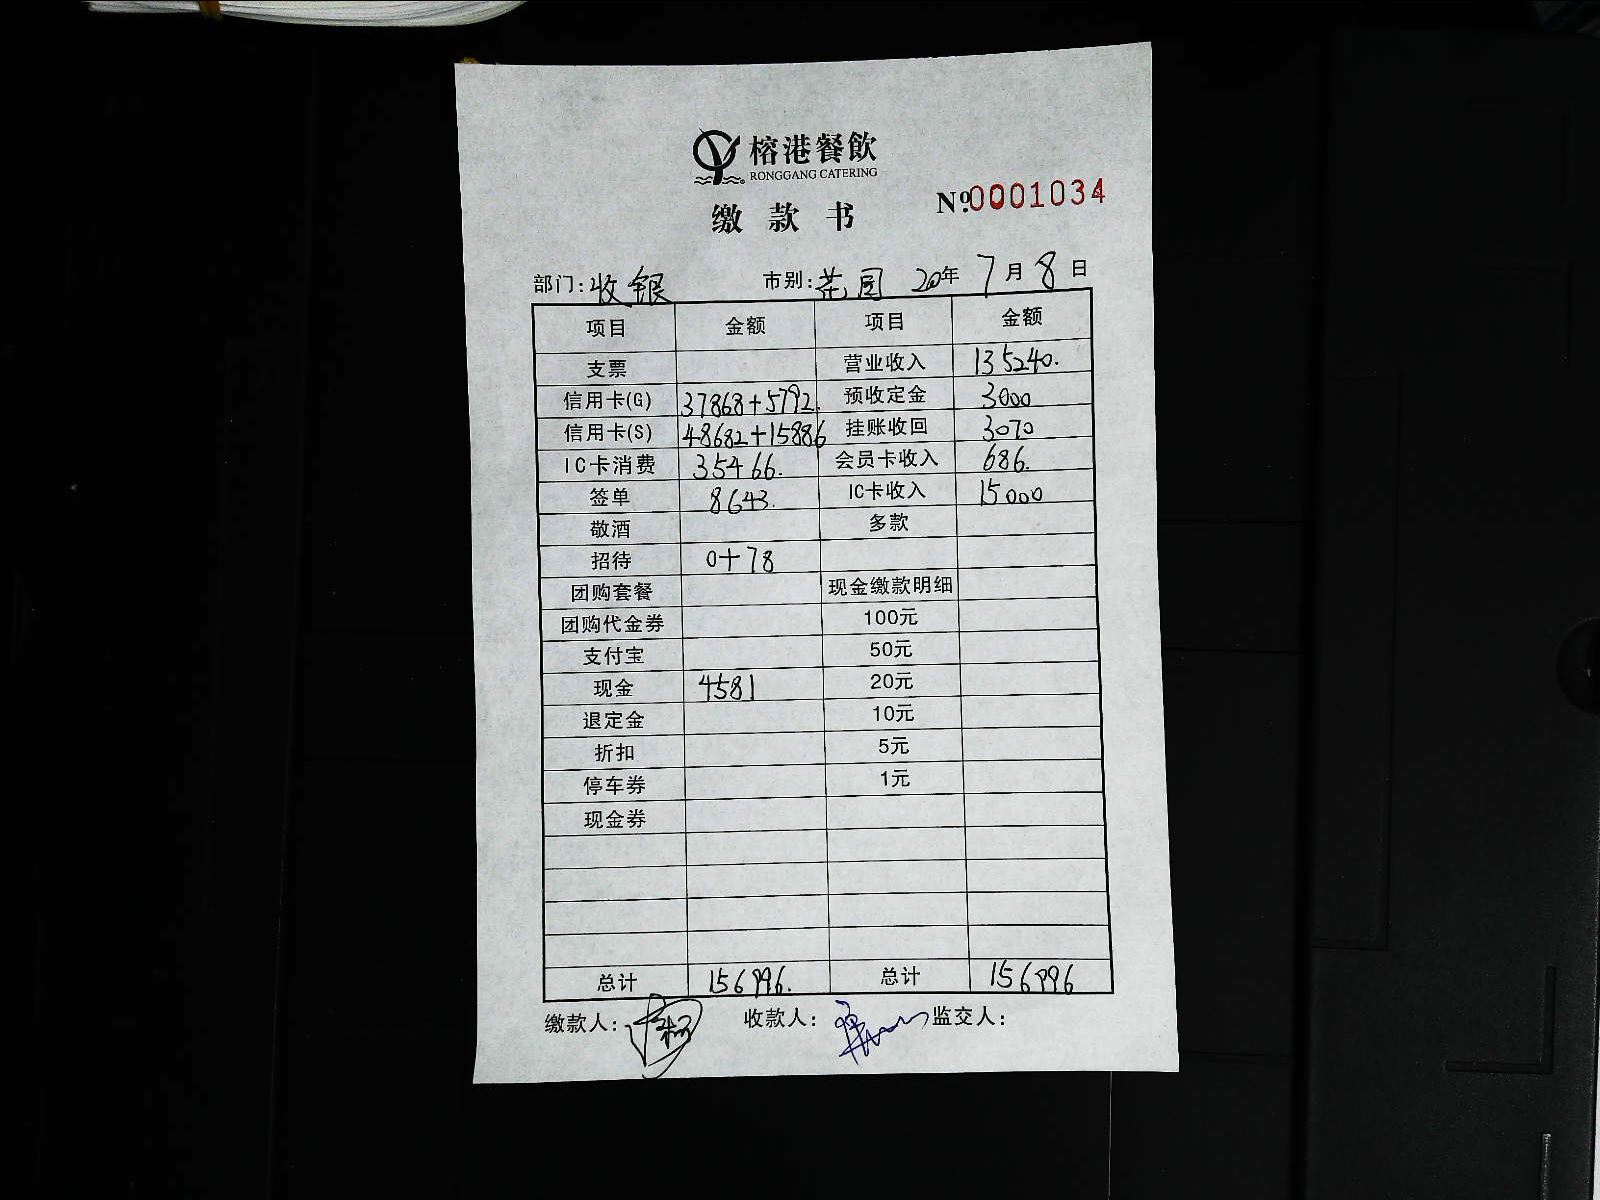 榕港餐飲
RONGGANG CATERING
缴款书
Nº:0001034
部门:收银 市别: 20年7月8日
项目 金额 项目 金额
支票 营业收入 135240.
信用卡(G) 37868+5792. 预收定金 3000
信用卡(S) 48682+15886 挂账收回 3070
IC卡消费 35466. 会员卡收入 686.
签单 8643. IC卡收入 15000
敬酒 多款
招待 0+78
团购套餐 现金缴款明细
团购代金券 100元
支付宝 50元
现金 4581 20元
退定金 10元
折扣 5元
停车券 1元
现金券
总计 156996. 总计 156996
缴款人: 收款人: 监交人: